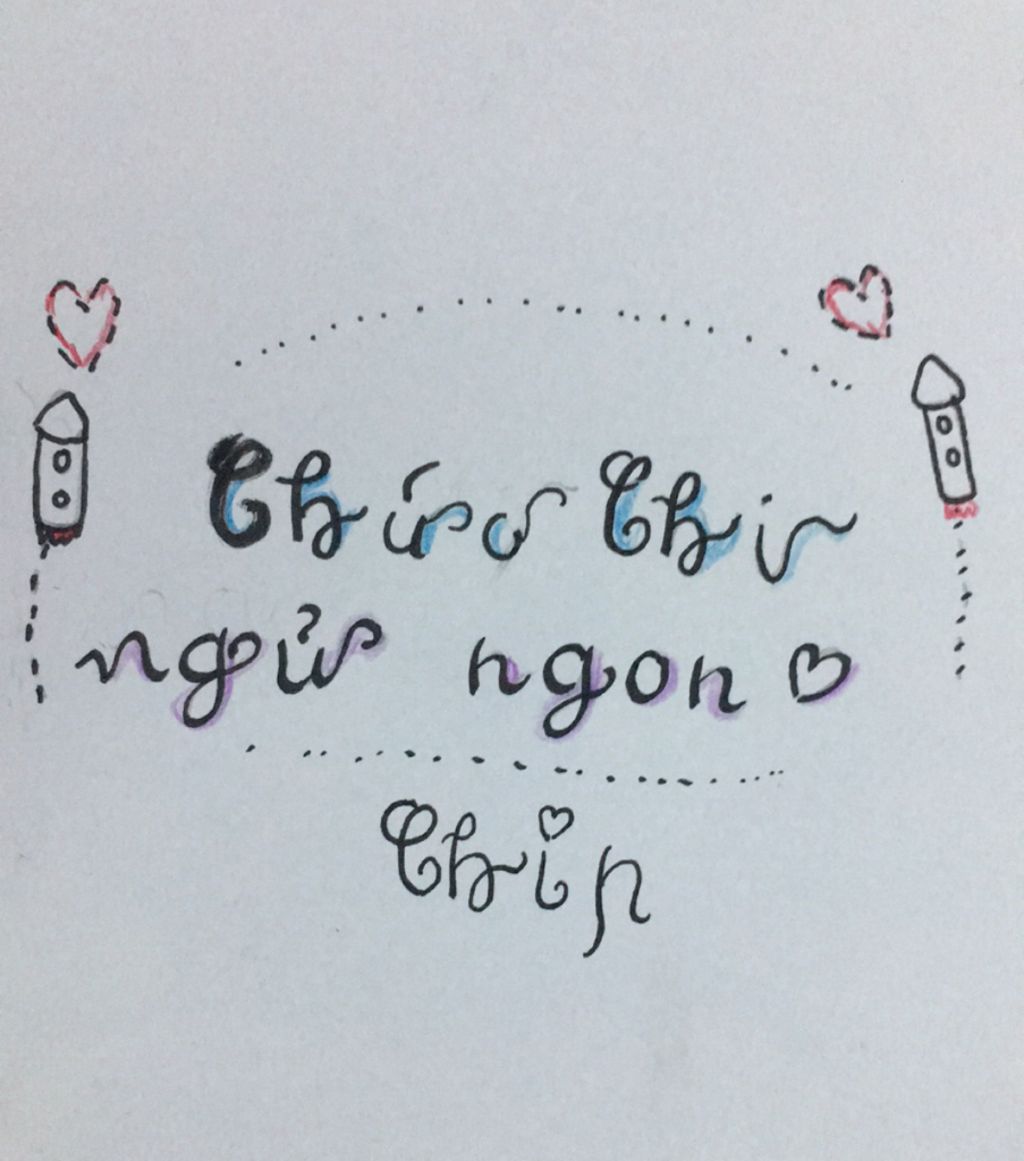 Chúc Chi
ngủ ngon ♡
Chip